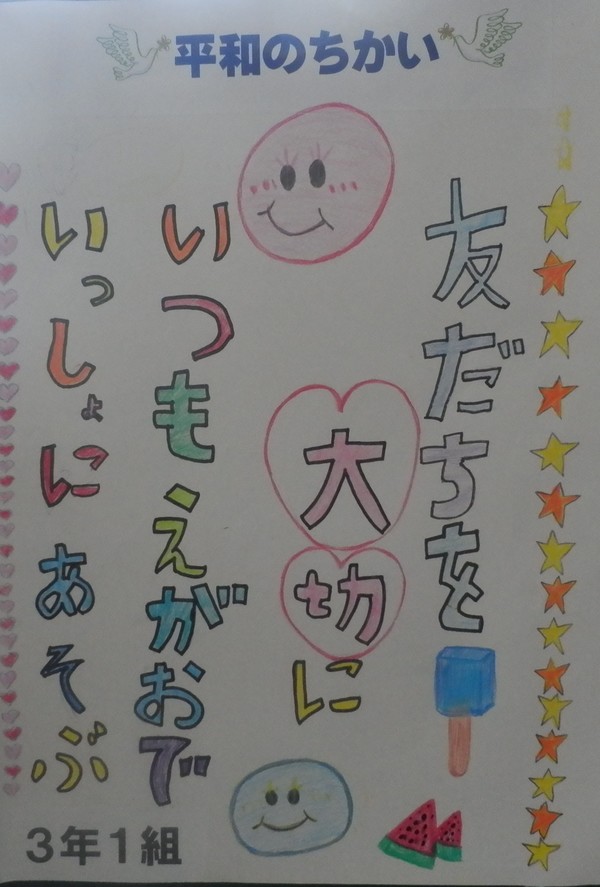 平和のちかい
友だちを
大切に
いつもえがおで
いっしょにあそぶ
3年1組